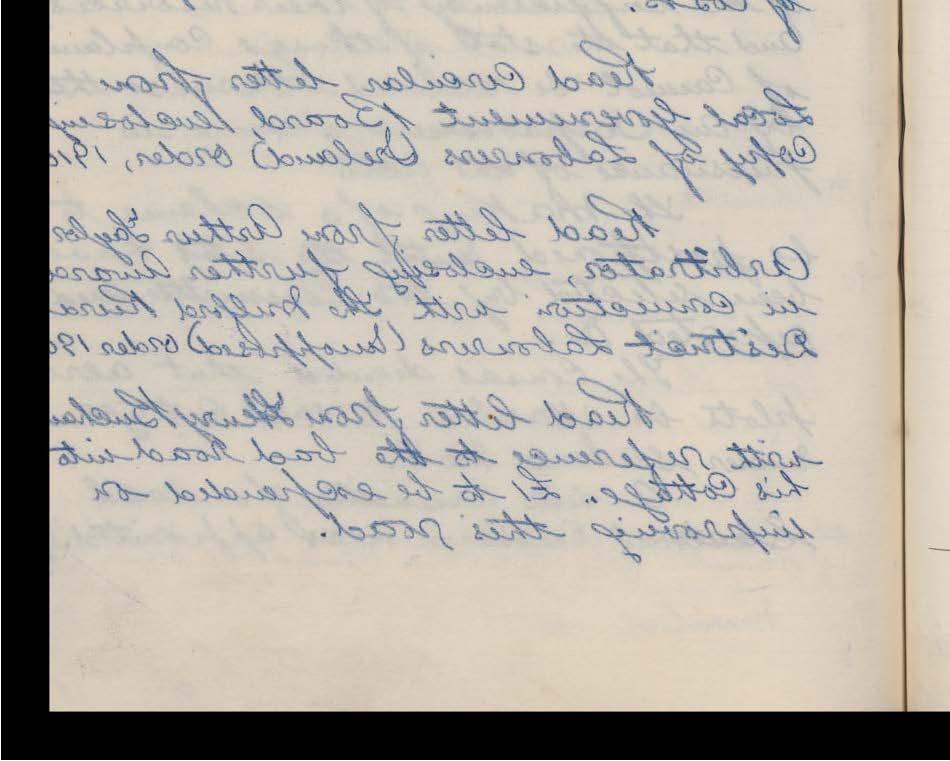 of costs.
Read Circular letter from
Local Government Board, enclosing
Copy of Labourers (Ireland) Order, 191
Read letter from Arthur Taylor
Arbitrator, enclosing further Award
in connection with the Milford Rural
District Labourers (Unopposed) Order 190
Read letter from Henry Buchan
with reference to the bad road into
his Cottage. £1 to be expended on
improving this road.